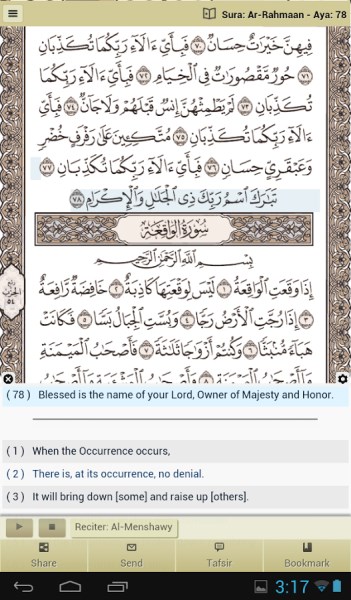 Sura: Ar-Rahmaan - Aya: 78
فِيهِنَّ خَيْرَاتٌ حِسَانٌ ٧٠ فَبِأَيِّ ءَالَاءِ رَبِّكُمَا تُكَذِّبَانِ
٧١ حُورٌ مَّقْصُورَاتٌ فِي الْخِيَامِ ٧٢ فَبِأَيِّ ءَالَاءِ رَبِّكُمَا
تُكَذِّبَانِ ٧٣ لَمْ يَطْمِثْهُنَّ إِنسٌ قَبْلَهُمْ وَلَا جَانٌّ ٧٤ فَبِأَيِّ
ءَالَاءِ رَبِّكُمَا تُكَذِّبَانِ ٧٥ مُتَّكِئِينَ عَلَىٰ رَفْرَفٍ خُضْرٍ
وَعَبْقَرِيٍّ حِسَانٍ ٧٦ فَبِأَيِّ ءَالَاءِ رَبِّكُمَا تُكَذِّبَانِ ٧٧
تَبَارَكَ اسْمُ رَبِّكَ ذِي الْجَلَالِ وَالْإِكْرَامِ ٧٨
سُورَةُ الْوَاقِعَةِ
بِسْمِ اللَّهِ الرَّحْمَٰنِ الرَّحِيمِ
إِذَا وَقَعَتِ الْوَاقِعَةُ ١ لَيْسَ لِوَقْعَتِهَا كَاذِبَةٌ ٢ خَافِضَةٌ رَّافِعَةٌ
٣ إِذَا رُجَّتِ الْأَرْضُ رَجًّا ٤ وَبُسَّتِ الْجِبَالُ بَسًّا ٥ فَكَانَتْ
هَبَاءً مُّنبَثًّا ٦ وَكُنتُمْ أَزْوَاجًا ثَلَاثَةً ٧ فَأَصْحَابُ الْمَيْمَنَةِ
مَا أَصْحَابُ الْمَيْمَنَةِ ٨ وَأَصْحَابُ الْمَشْأَمَةِ مَا أَصْحَابُ
( 78 ) Blessed is the name of your Lord, Owner of Majesty and Honor.
( 1 ) When the Occurrence occurs,
( 2 ) There is, at its occurrence, no denial.
( 3 ) It will bring down [some] and raise up [others].
Reciter: Al-Menshawy
Share Send Tafsir Bookmark
3:17